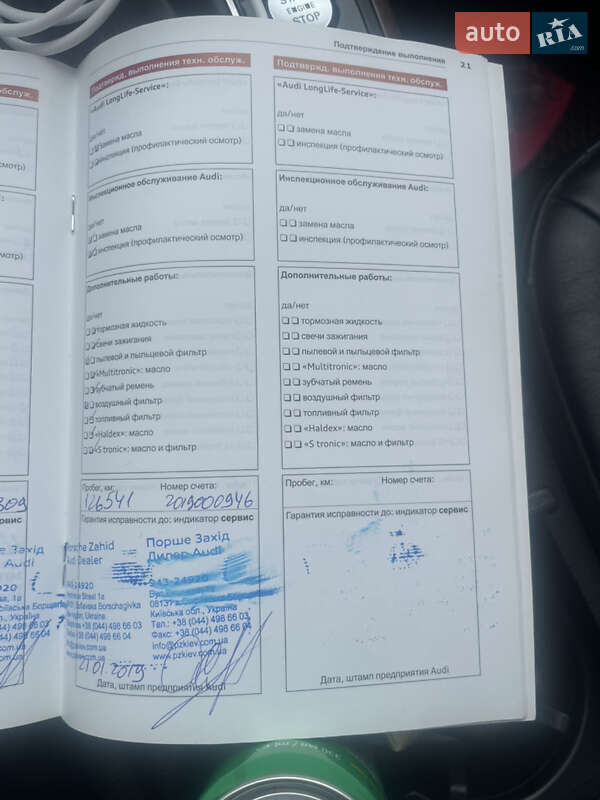 START
ENGINE
STOP
auto RIA .com
Подтверждение выполнения 21
обслуж.
осмотр)
осмотр)
Подтвержд. выполнения техн. обслуж.
«Audi LongLife-Service»:
да/нет
замена масла
инспекция (профилактический осмотр)
Инспекционное обслуживание Audi:
да/нет
замена масла
инспекция (профилактический осмотр)
Дополнительные работы:
да/нет
тормозная жидкость
свечи зажигания
пылевой и пыльцевой фильтр
«Multitronic»: масло
зубчатый ремень
воздушный фильтр
топливный фильтр
«Haldex»: масло
«S tronic»: масло и фильтр
Пробег, км: Номер счета:
126541 2019000946
Гарантия исправности до: индикатор сервис
Porsche Zahid Порше Захід
Audi Dealer Дилер Audi
943-24920 943-24920
08131
Sofiivska Borschagivka Київська обл., Україна
Ukraine Тел.: +38 (044) 498 66 03
+38 (044) 498 66 03 Факс: +38 (044) 498 66 04
+38 (044) 498 66 04 info@pzkiev.com.ua
www.pzkiev.com.ua
21.01.2019
Дата, штамп предприятия Audi
Подтвержд. выполнения техн. обслуж.
«Audi LongLife-Service»:
да/нет
замена масла
инспекция (профилактический осмотр)
Инспекционное обслуживание Audi:
да/нет
замена масла
инспекция (профилактический осмотр)
Дополнительные работы:
да/нет
тормозная жидкость
свечи зажигания
пылевой и пыльцевой фильтр
«Multitronic»: масло
зубчатый ремень
воздушный фильтр
топливный фильтр
«Haldex»: масло
«S tronic»: масло и фильтр
Пробег, км: Номер счета:
Гарантия исправности до: индикатор сервис
Дата, штамп предприятия Audi